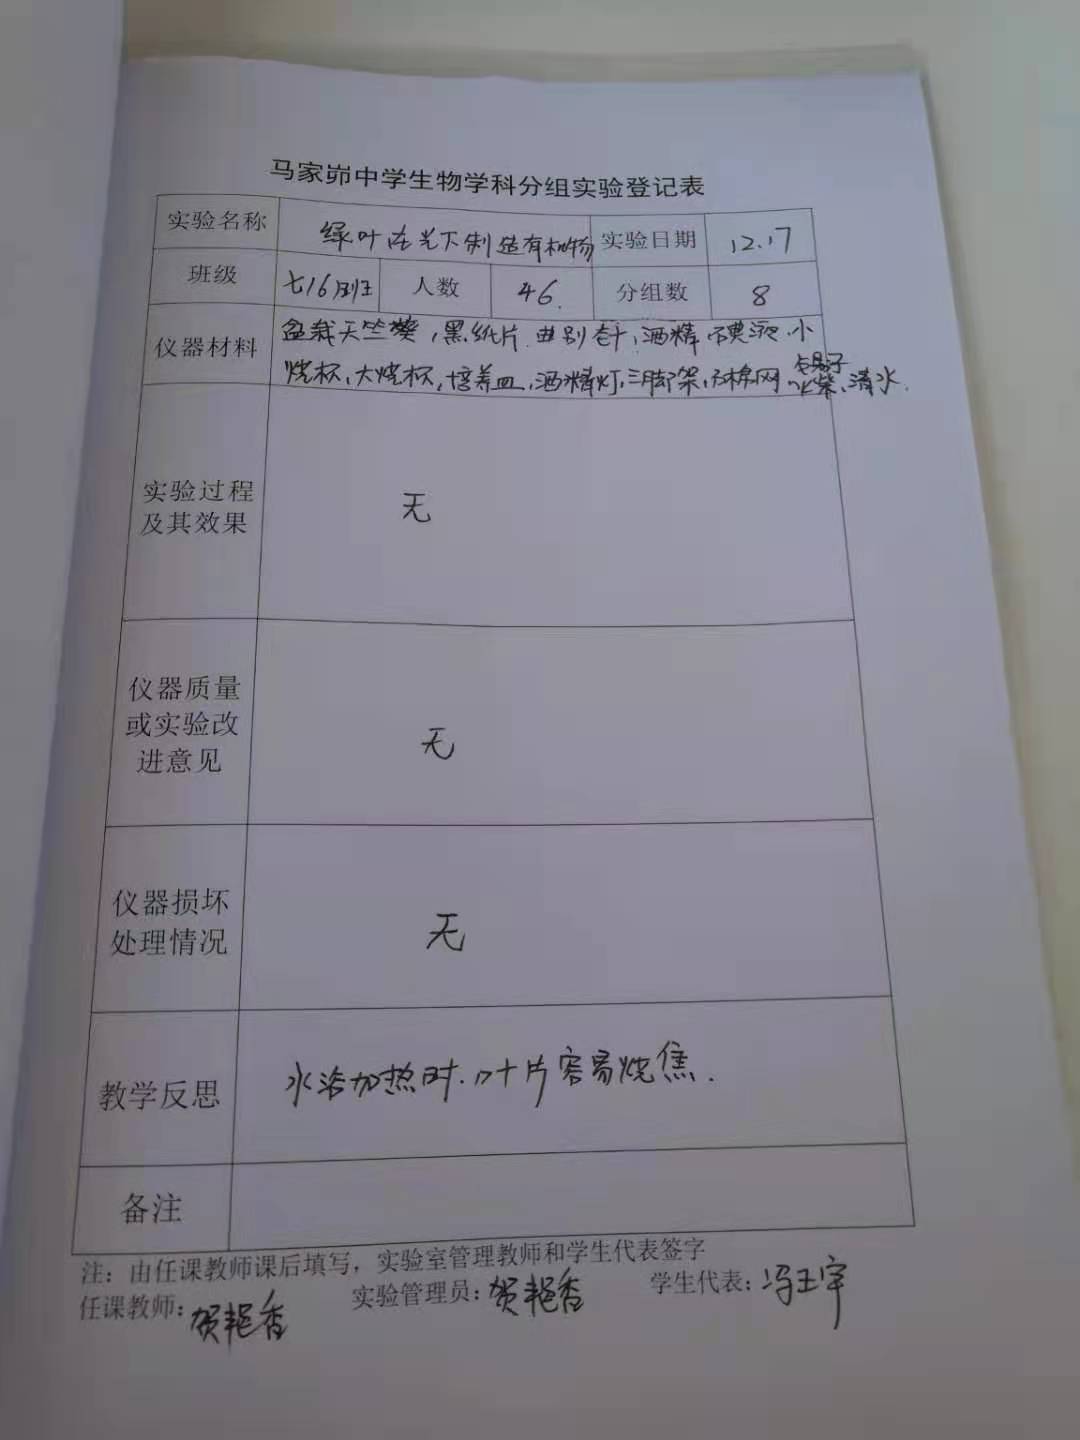 马家峁中学生物学科分组实验登记表
实验名称 绿叶在光下制造有机物 实验日期 12.17
班级 七16班 人数 46. 分组数 8
仪器材料 盆栽天竺葵,黑纸片.曲别针,酒精 碘液.小
烧杯,大烧杯,培养皿,酒精灯,三脚架,石棉网、火柴、清水.
镊子
实验过程
及其效果
无
仪器质量
或实验改
进意见
无
仪器损坏
处理情况
无
教学反思 水浴加热时.叶片容易烧焦.
备注
注:由任课教师课后填写,实验室管理教师和学生代表签字
任课教师:贺艳香 实验管理员:贺艳香 学生代表:冯王宇